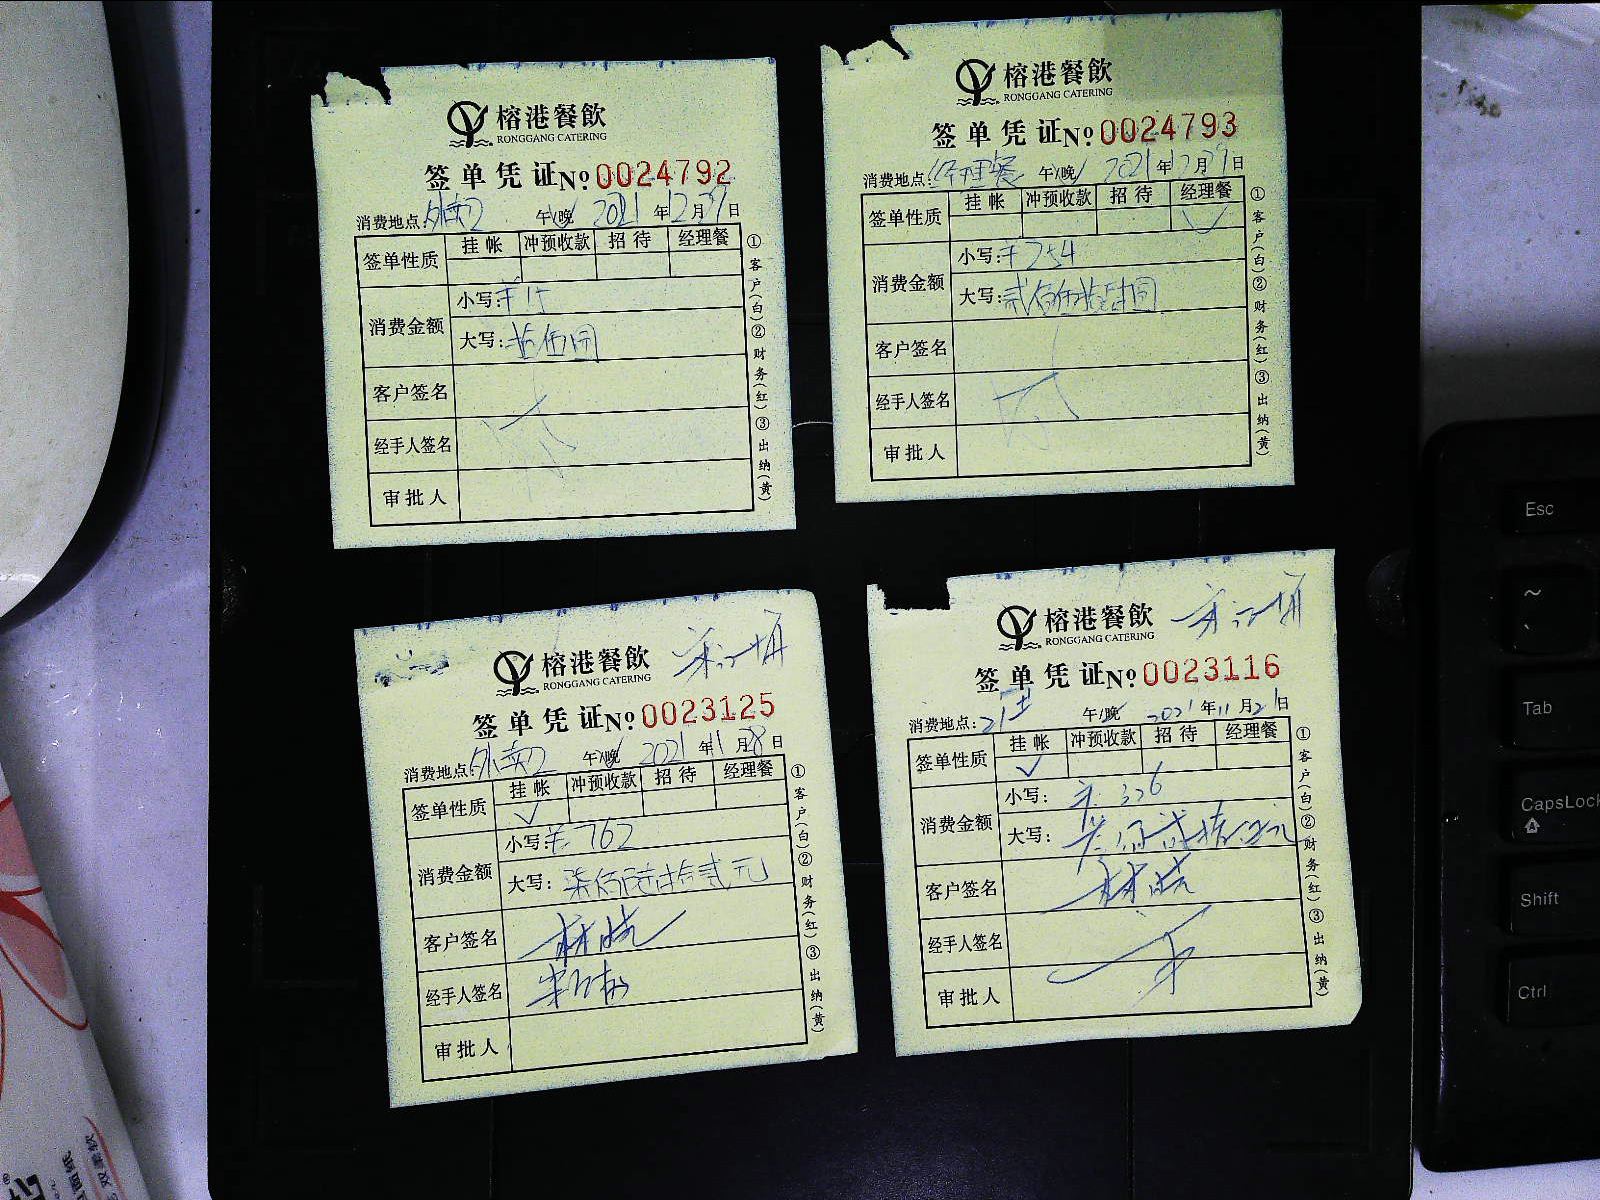 榕港餐飲
RONGGANG CATERING
签单凭证 №0024792
消费地点:外卖2 午/晚 2021年12月29日
签单性质 挂帐 冲预收款 招待 经理餐
消费金额 小写:¥15
大写:拾伍圆
客户签名
经手人签名
审批人
①客户(白)②财务(红)③出纳(黄)
榕港餐飲
RONGGANG CATERING
签单凭证 №0024793
消费地点:经理餐 午/晚 2021年12月29日
签单性质 挂帐 冲预收款 招待 经理餐
✓
消费金额 小写:¥254
大写:贰佰伍拾肆圆
客户签名
经手人签名
审批人
①客户(白)②财务(红)③出纳(黄)
榕港餐飲
RONGGANG CATERING
签单凭证 №0023125
消费地点:外卖2 午/晚 2021年11月28日
签单性质 挂帐 冲预收款 招待 经理餐
✓
消费金额 小写:¥762
大写:柒佰陆拾贰元
客户签名 林晓
经手人签名
审批人
①客户(白)②财务(红)③出纳(黄)
榕港餐飲
RONGGANG CATERING
签单凭证 №0023116
消费地点: 午/晚 2021年11月21日
签单性质 挂帐 冲预收款 招待 经理餐
✓
消费金额 小写:¥326
大写:叁佰贰拾陆元
客户签名 林晓
经手人签名
审批人
①客户(白)②财务(红)③出纳(黄)
Esc
~
Tab
CapsLock
Shift
Ctrl